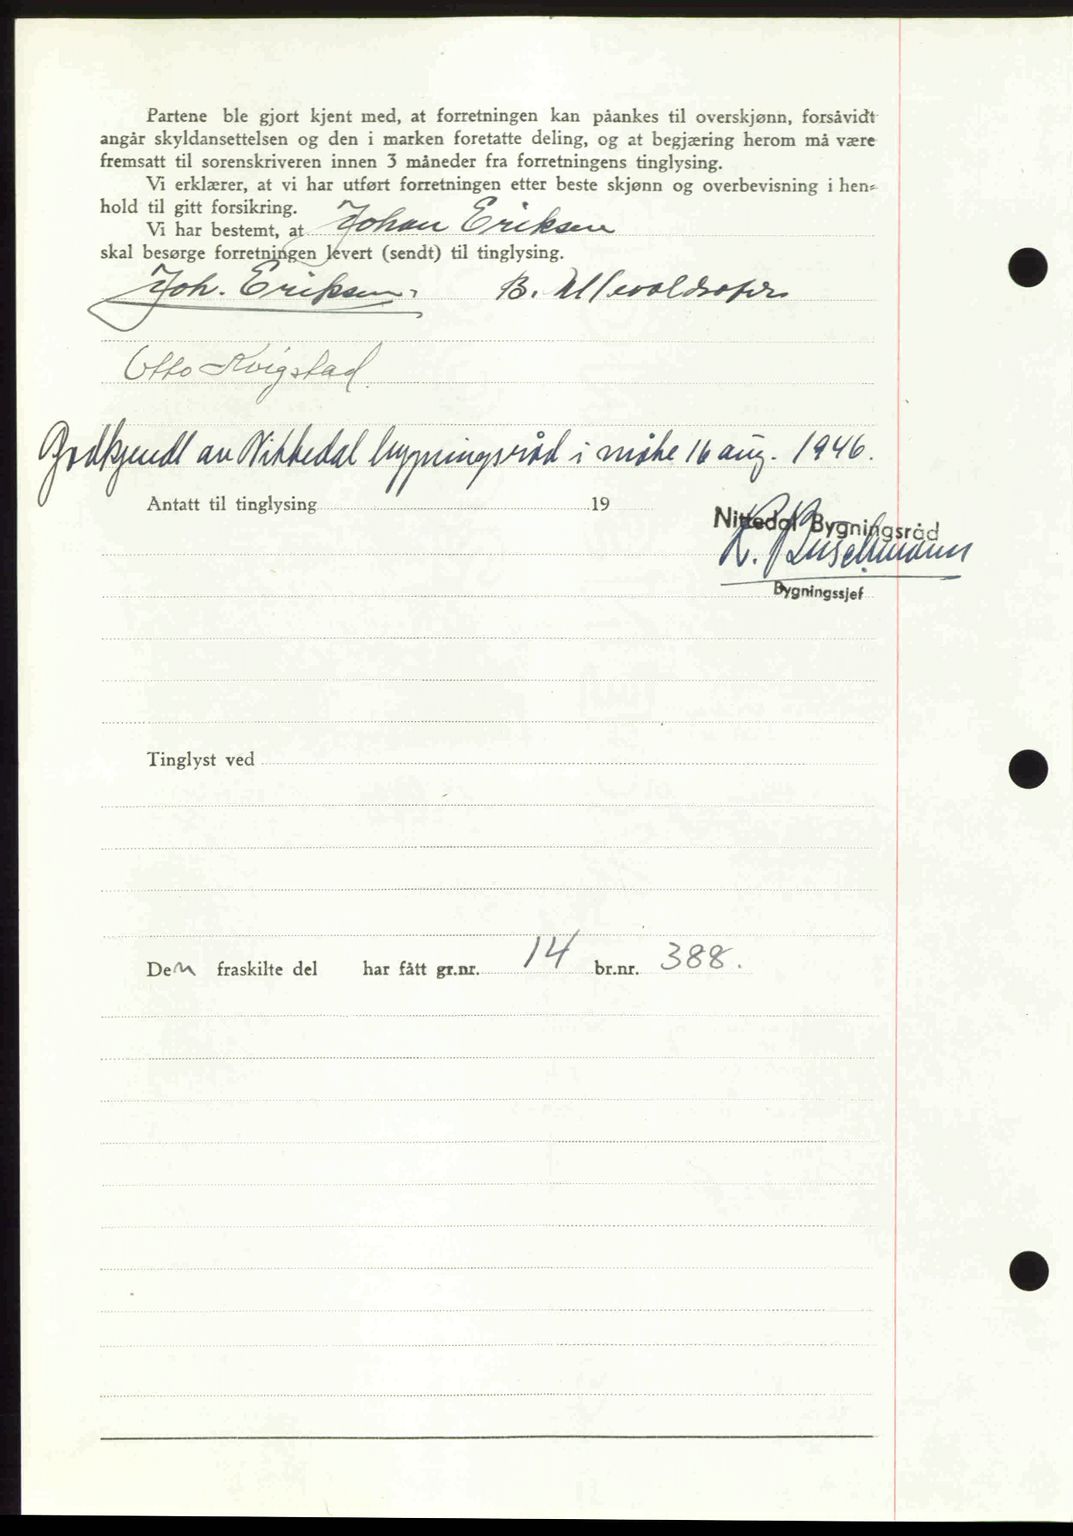 Partene ble gjort kjent med, at forretningen kan påankes til overskjønn, forsåvidt
angår skyldansettelsen og den i marken foretatte deling, og at begjæring herom må være
fremsatt til sorenskriveren innen 3 måneder fra forretningens tinglysing.
Vi erklærer, at vi har utført forretningen etter beste skjønn og overbevisning i hen-
hold til gitt forsikring.
Vi har bestemt, at Johan Eriksen
skal besørge forretningen levert (sendt) til tinglysing.
Joh. Eriksen. B.
Otto Kvigstad
Godkjendt av Nittedal bygningsråd i møte 16 aug. 1946.
Antatt til tinglysing 19
Nittedal Bygningsråd
Bygningssjef
Tinglyst ved
Den fraskilte del har fått gr.nr. 14 br.nr. 388.